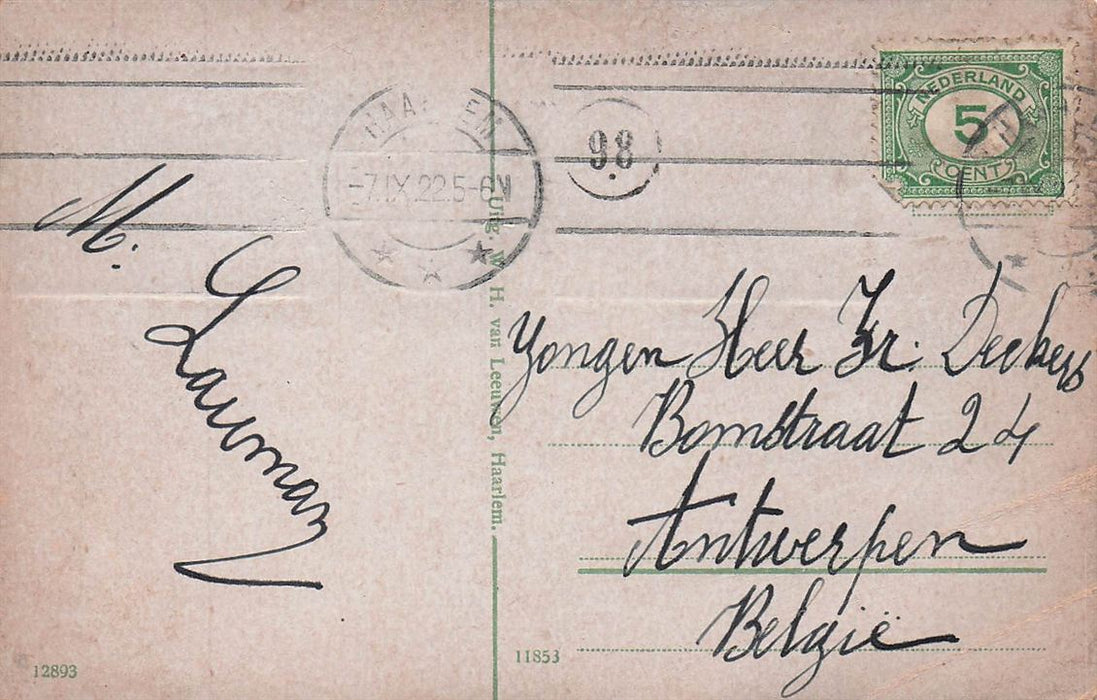 NEDERLAND
5
CENT
HAARLEM
-7.IX.22.5-6N
98
M. Lauman
Uitg. W. H. van Leeuwen, Haarlem.
Yongen Heer Fr. Deckers
Bomstraat 24
Antwerpen
België
12893
11853